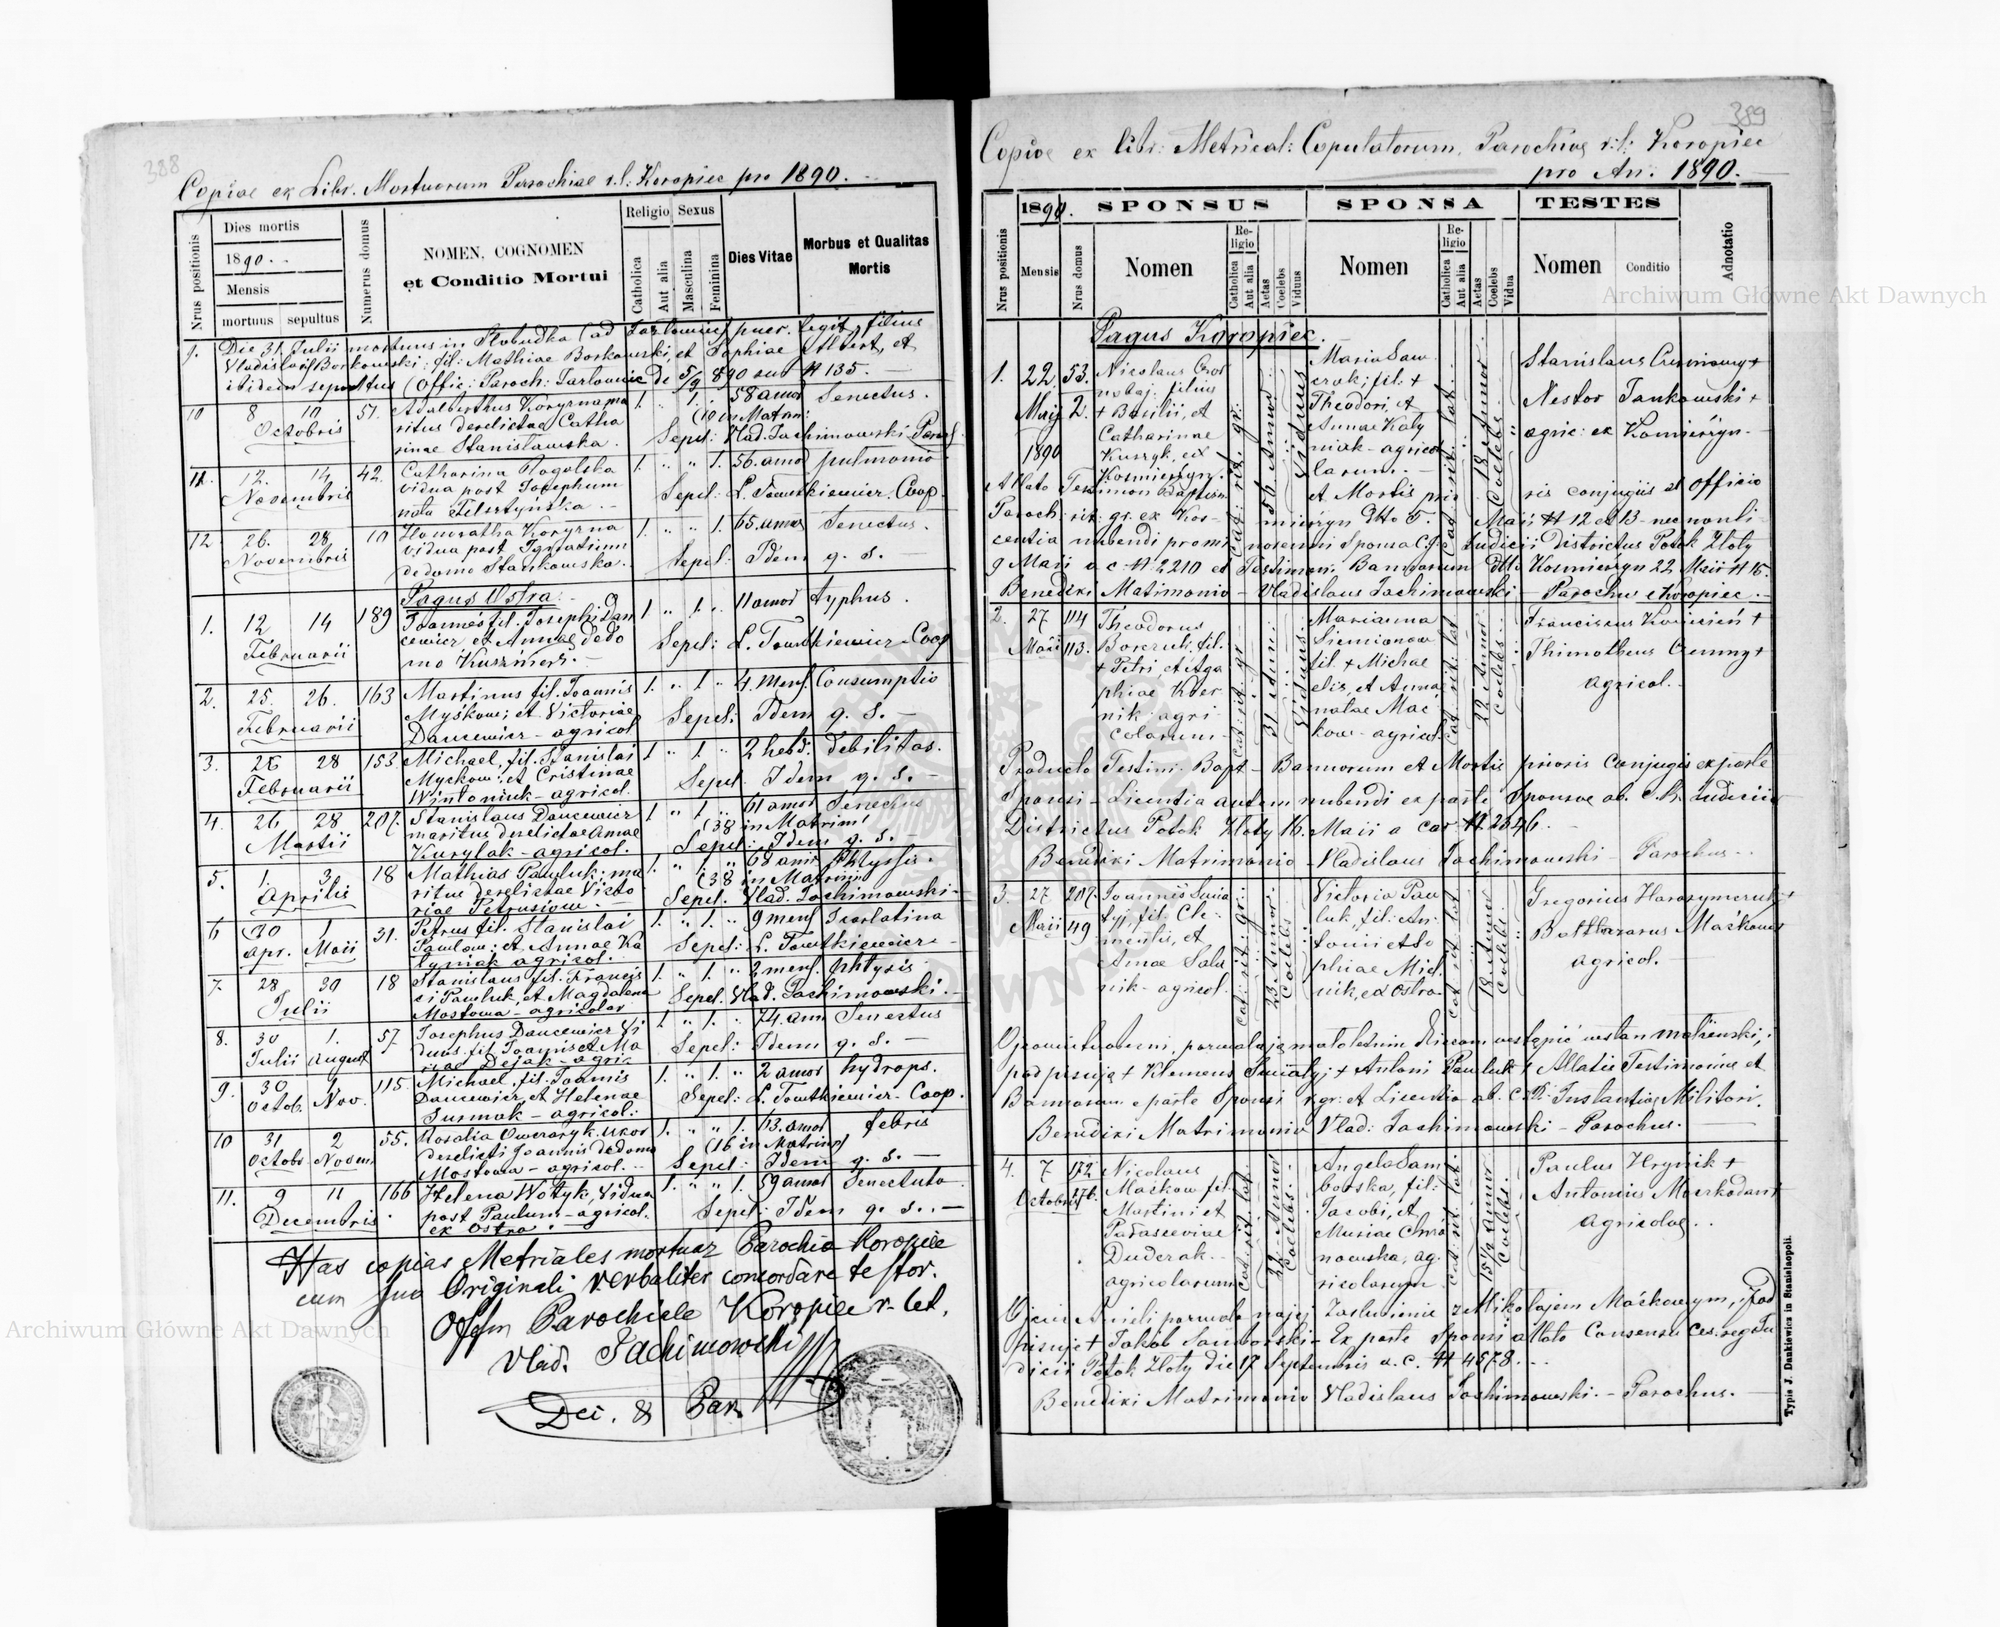 388
Copiae ex Libr. Mortuorum Parochiae r.l: Koropiec pro 1890.
Nrus positionis
Dies mortis
1890.
Mensis
mortuus sepultus
Numerus domus
NOMEN, COGNOMEN
et Conditio Mortui
Religio
Catholica
Aut alia
Sexus
Masculina
Feminina
Dies Vitae
Morbus et Qualitas
Mortis
9. Die 31 Julii mortuus in Slobudka (ad Tarlowiec) puer. legit. filius
Vladislaus Borkowski: fil: Mathiae Borkowski, et Sophiae Albert, et
ibidem sepultus (Offic: Paroch: Tarlowic de 5/9 890 sub # 135. —
10 8 10 51. Adalbertus Koryzna ma 1. 1. 58 annor Senectus.
Octobris ritus derelictae Catha (10 in Matrim:
rinae Stanislawska. Sepel: Vlad. Jachimowski Paroch.
11. 12. 14 42. Catharina 1. " " 1. 56. annor pulmonia
Novembris vidua post Josephum Sepel: L. Tomtkiewicz. Coop.
nata
12 26. 28 10 Koryzna 1. " " 1. 65. annor Senectus.
Novembris vidua post Ignatium Sepel: Idem q. s. —
de domo Stankowska.
Pagus Ostra.
1. 12 14 189 Joannes fil. Josephi Dan 1 " 1. " 11 annor typhus.
Februarii cewicz et Annae de do Sepel: L. Tomtkiewicz Coop
mo Kuszmerz. —
2. 25. 26. 163 Martinus fil. Joannis 1. " 1 " 4. mens. Consumptio
Februarii Myskow; et Victoriae Sepel: Idem q. s. —
Dancewicz — agricol
3. 26 28 153 Michael, fil. Stanislai 1 " 1 " 2 hebd: debilitas.
Februarii Myckow: et Cristinae Sepel. Idem q. s. —
Wintoniuk — agricol.
4. 26 28 207. Stanislaus Dancewicz 1 " 1 " 61 annor Senectus
Martii maritus derelictae Annae (38 in Matrim)
Kurylak — agricol. Sepel: Idem q. s. —
5. 1. 3. 18 Mathias Pawluk; ma 1. " 1. " 68 annor Phtyssis.
Aprilis ritus derelictae Victo (38 in Matrim)
riae Petrusiow. — Sepel: Vlad. Jachimowski —
6 30 1 31. Petrus fil. Stanislai 1. " 1. " 9 mens Scarlatina
Apr. Maii Pawlow; et Annae Ka Sepel: L. Tomtkiewicz —
lyniak agricol.
7. 28 30 18 Stanislaus fil. Francis 1. " 1. " 2 mens. phtysis
Julii ci Pawluk, et Magdalena Sepel. Vlad. Jachimowski. —
Mostowa — agricolar
8. 30 1. 57. Josephus Dancewicz Vi 1 " 1. " 74. ann Senectus
Julii August duus fil. Joannis et Ma Sepel: Idem q. s. —
riae Dejak — agric
9. 30 1 115. Michael. fil. Joannis 1. " 1. " 2 annor hydrops.
Octob. Nov. Dancewicz et Helenae Sepel: L. Tomtkiewicz — Coop.
Surmak — agricol:
10 31 2 55. Rosalia Owczaryk uxor 1. " " 1. 63. annor febris
Octobr Novem derelicti Joannis de domo (16 in Matrimo)
Mostowa — agricol. Sepel: Idem q. s. —
11. 9 11 166 Helena Wotyk, Vidua 1. " " 1. 59 annor Senectute
Decembris post Paulum — agricol. Sepel: Idem q. s. —
ex Ostra. —
Has copias Metricales mortuor Parochia Koropiec
cum suo Originali verbaliter concordare testor.
Offm Parochiale Koropiec r. lat.
Vlad. Jachimowski
Dec. & Par.
389
Copiae ex libr: Metrical: Copulatorum, Parochiae r.l: Koropiec
pro An: 1890.
Nrus positionis
1890.
Mensis
Nrus domus
SPONSUS
Nomen
Religio
Catholica
Aut alia
Aetas
Coelebs
Viduus
SPONSA
Nomen
Religio
Catholica
Aut alia
Aetas
Coelebs
Vidua
TESTES
Nomen
Conditio
Adnotatio
Pagus Koropiec.
1. 22 53. Nicolaus Maria Saw Stanislaus +
Maij 2. filius czak; fil: + Nestor Jankowski +
1890 + Basilii, et Theodori, et agric: ex Komierzyn
Catharinae Annae Kaly
Kuszyk, ex niak — agrico
Kosmierzyn. larum. —
cat: rit. gr. 56 Annor Viduus cat rit. lat. 18 Annor Coelebs
Allato Testimon Baptism et Mortis prio ris conjugis et officio
Paroch: rit: gr. ex Kosmierzyn dtto 5. Maii # 12 et 13 nec non li
centia nubendi pro minorenni Sponsa C.R. Judicii Districtus Potok Zloty
9 Maii a c # 2210 et Testimon. Bannorum dtto Kosmierzyn 22 Maii # 15.
Benedixi Matrimonio — Vladislaus Jachimowski — Parochus Koropiec. —
2. 27 114 Theodorus Marianna Franciscus +
Maii 113. fil. Siemianow Thimotheus Czemny +
+ Petri, et Aga fil + Micha agricol.
phiae Kuer elis, et Anna
nik agri natae Mac
colarum kow — agricol.
cat: rit gr 31 Anni Viduus cat. rit: lat 22 Annor Coelebs
Producto Testim. Bapt — Bannorum et Mortis prioris Conjugis ex parte
Sponsi — Licentia autem nubendi ex parte Sponsae ab. C. R. Judicii
Districtus Potok Zloty 16. Maii a cur # 2346.
Benedixi Matrimonio — Vladislaus Jachimowski — Parochus —
3. 27 207. Joannes Smia Victoria Paw Gregorius Harasymczuk +
Maii 49 tyj fil. Cle: luk, fil: An: Balthazarus Maćkow
mentis, et tonii et So agricol.
Annae Sala phiae Miel
nik — agricol. nik, ex Ostra
cat: rit: gr: 23 Annor Coelebs cat rit lat 18 Annor Coelebs
pozwalają małoletnim dzieciom wstąpić w stan małżeński, i
podpisują + Klemens Smiatyj + Antoni Pawluk. Allatis Testimoniis et
Bannorum e parte Sponsi r. gr: et Licentia ab. C. R. Instantiae Militari.
Benedixi Matrimonio Vlad: Jachimowski — Parochus.
4. 7 172 Nicolaus Angela Sam Paulus Hrynik +
Octobris 176. Maćkow fil. borska, fil: Antonius Marhodan
Martini et Jacobi, et agricolae.
Parasceviae Mariae Chma
Duderak. — nowska, ag.
agricolarum ricolarum
cat rit. lat. 22 Annor Coelebs. cat rit lat 15 1/2 Annor Coelebs.
Ojciec Anieli pozwala na jej zaślubienie z Mikołajem Maćkowym, i pod
pisuje + Jakób Samborski — Ex parte Sponsi allato Consensu Ces. reg Ju
dicii Potok Zloty die 17 Septembris a. c. # 4578. —
Benedixi Matrimonio Vladislaus Jachimowski. — Parochus. —
Typis J. Dankiewicz in Stanislaopoli.
Archiwum Główne Akt Dawnych
Archiwum Główne Akt Dawnych